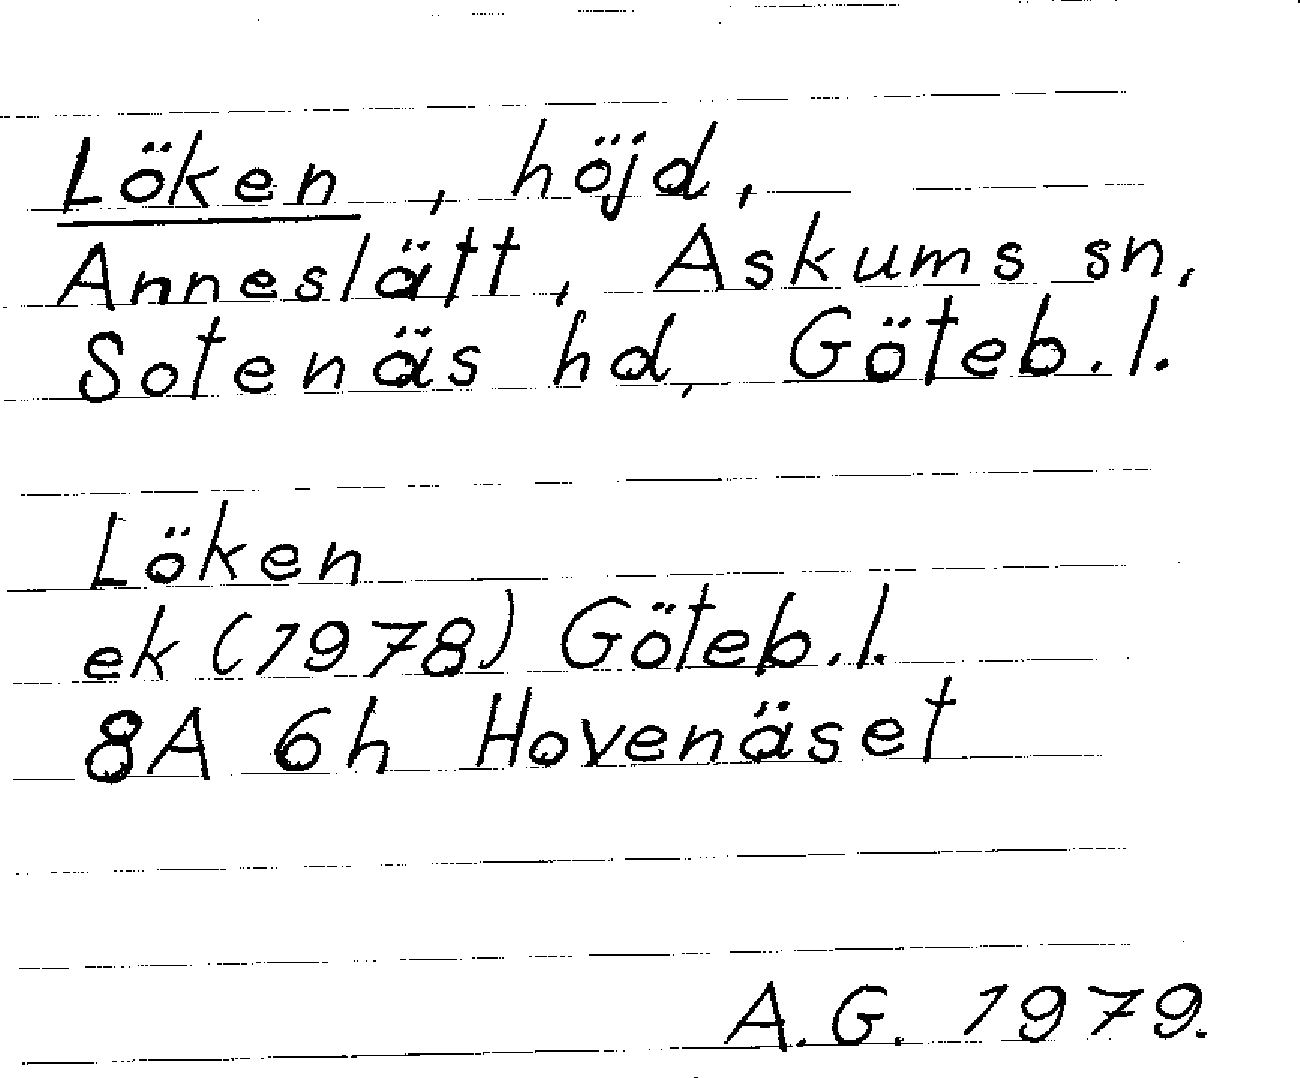 Löken, höjd,
Anneslätt, Askums sn,
Sotenäs hd, Göteb. l.
Löken
ek (1978) Göteb. l.
8A 6h Hovenäset
A. G. 1979.